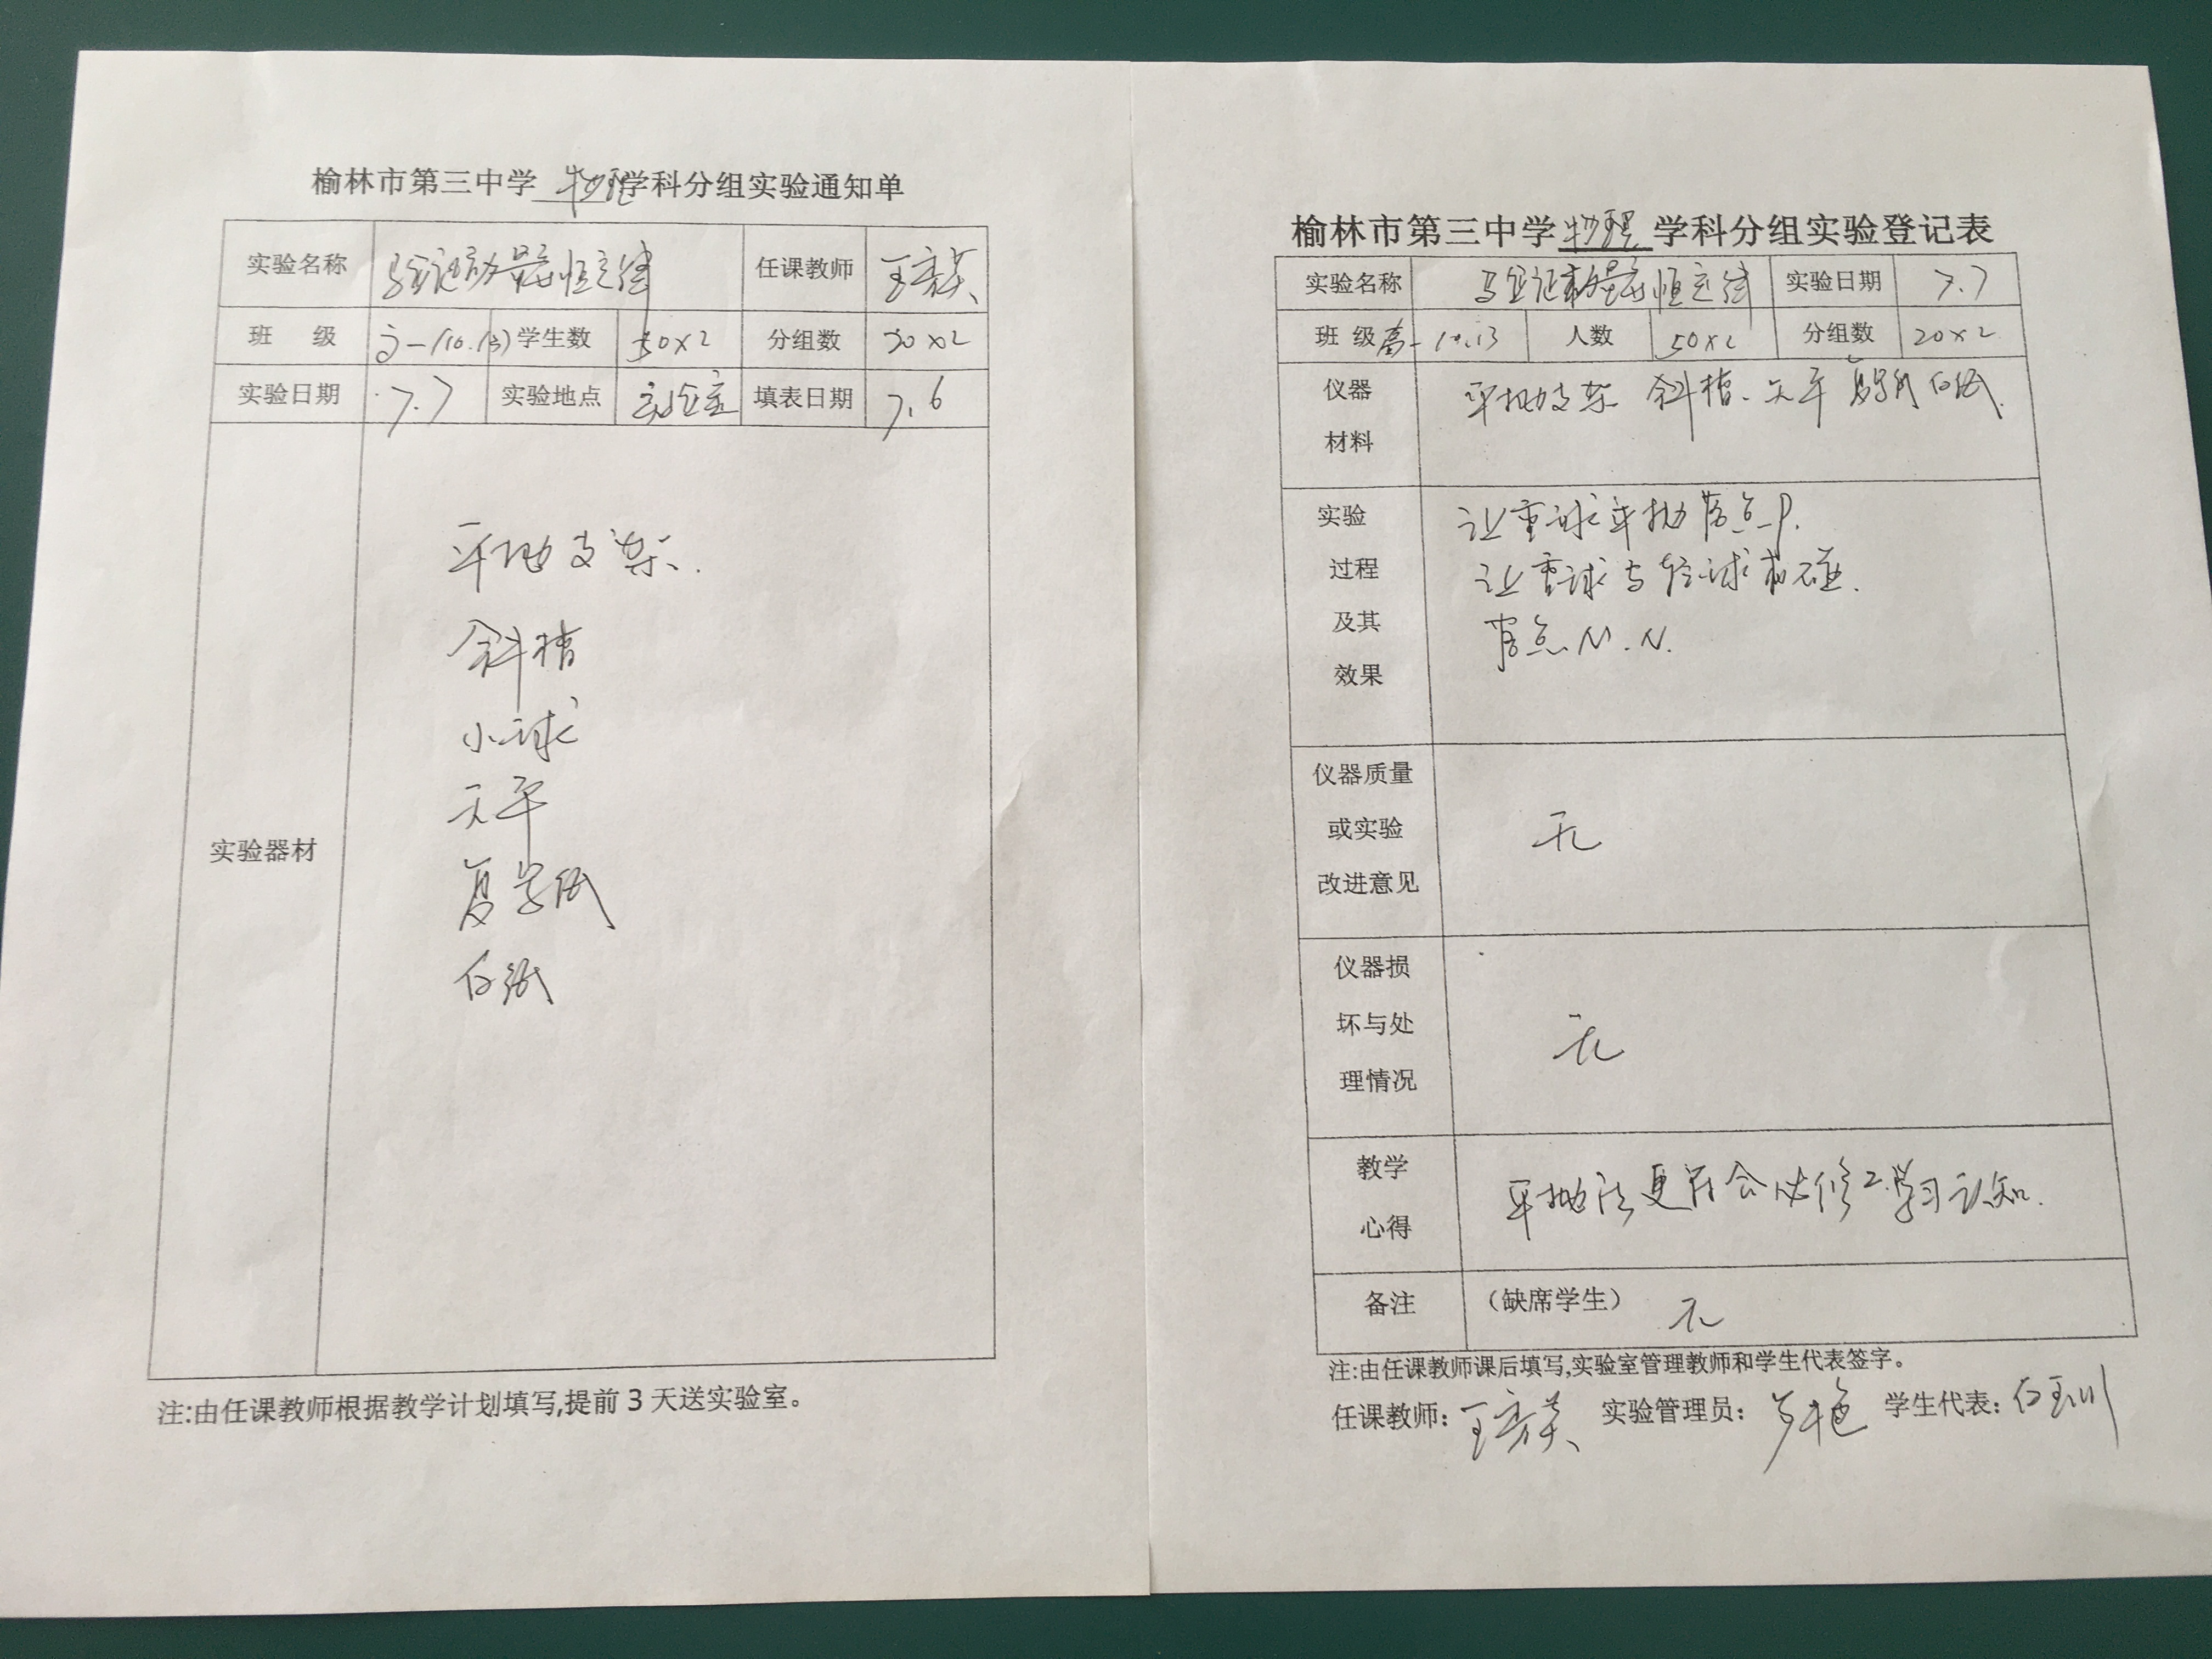 榆林市第三中学 物理 学科分组实验通知单
实验名称 验证动量守恒定律 任课教师 王彦英
班 级 高一(10.13) 学生数 50×2 分组数 20×2
实验日期 7.7 实验地点 实验室 填表日期 7.6
实验器材
平抛支架.
斜槽
小球
天平
复写纸
白纸
注:由任课教师根据教学计划填写,提前3天送实验室。
榆林市第三中学 物理 学科分组实验登记表
实验名称 验证动量守恒定律 实验日期 7.7
班 级 高一10.13 人数 50×2 分组数 20×2
仪器
材料
平抛支架 斜槽、天平 复写纸 白纸.
实验
过程
及其
效果
让重球平抛落点P.
让重球与轻球相碰.
落点M.N.
仪器质量
或实验
改进意见
无
仪器损
坏与处
理情况
无
教学
心得
平抛法更符合必修2学习认知.
备注 (缺席学生) 无
注:由任课教师课后填写,实验室管理教师和学生代表签字。
任课教师: 王彦英 实验管理员: 学生代表: